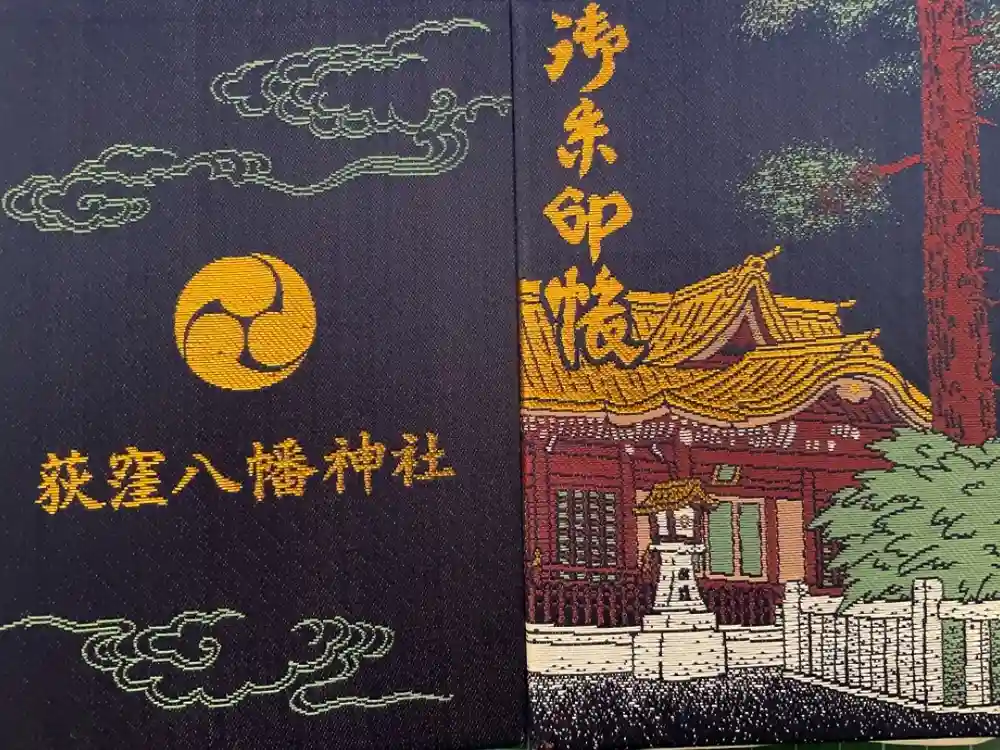 御朱印帳
荻窪八幡神社